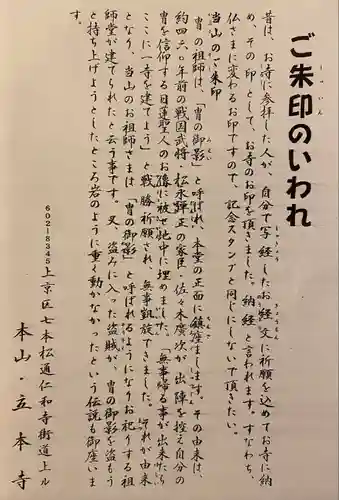 ご朱印のいわれ
昔は、お寺に参拝した人が、自分で写経したお経文に祈願を込めてお寺に納
め、その印として、お寺のお印を頂きました。納経と言われます。すなわち、
仏さまに変わるお印ですので、記念スタンプと同じにしないで頂きたい。
当山のご朱印
冑の祖師は、「冑の御影」と呼ばれ、本堂の正面に鎮座します。その由来は、
約四六〇年前の戦国武将・松永弾正の家臣・佐々木慶次が、出陣を控え自分の
冑を信仰する日蓮聖人のお像に被せ地中に埋めました。「無事帰る事が出来たら
ここに一寺を建てよう」と戦勝祈願され、無事凱旋できました。それが由来
となり、当山のお祖師さまは「冑の御影」と呼ばれるようになりお祀りする祖
師堂が建てられたと云う事です。又、盗みに入った盗賊が、冑の御影を盗もう
と持ち上げようとしたところ岩のように重く動かなかったという伝説も御座いま
す。
6028345 上京区七本松通仁和寺街道上ル
本山・立本寺